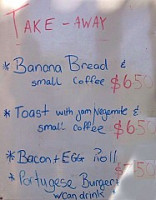 TAKE - AWAY
* Banana Bread &
small coffee $650
* Toast with jam Negemite &
small coffee $650
* Bacon + EGG Roll
* Portugese Burger
w can drink